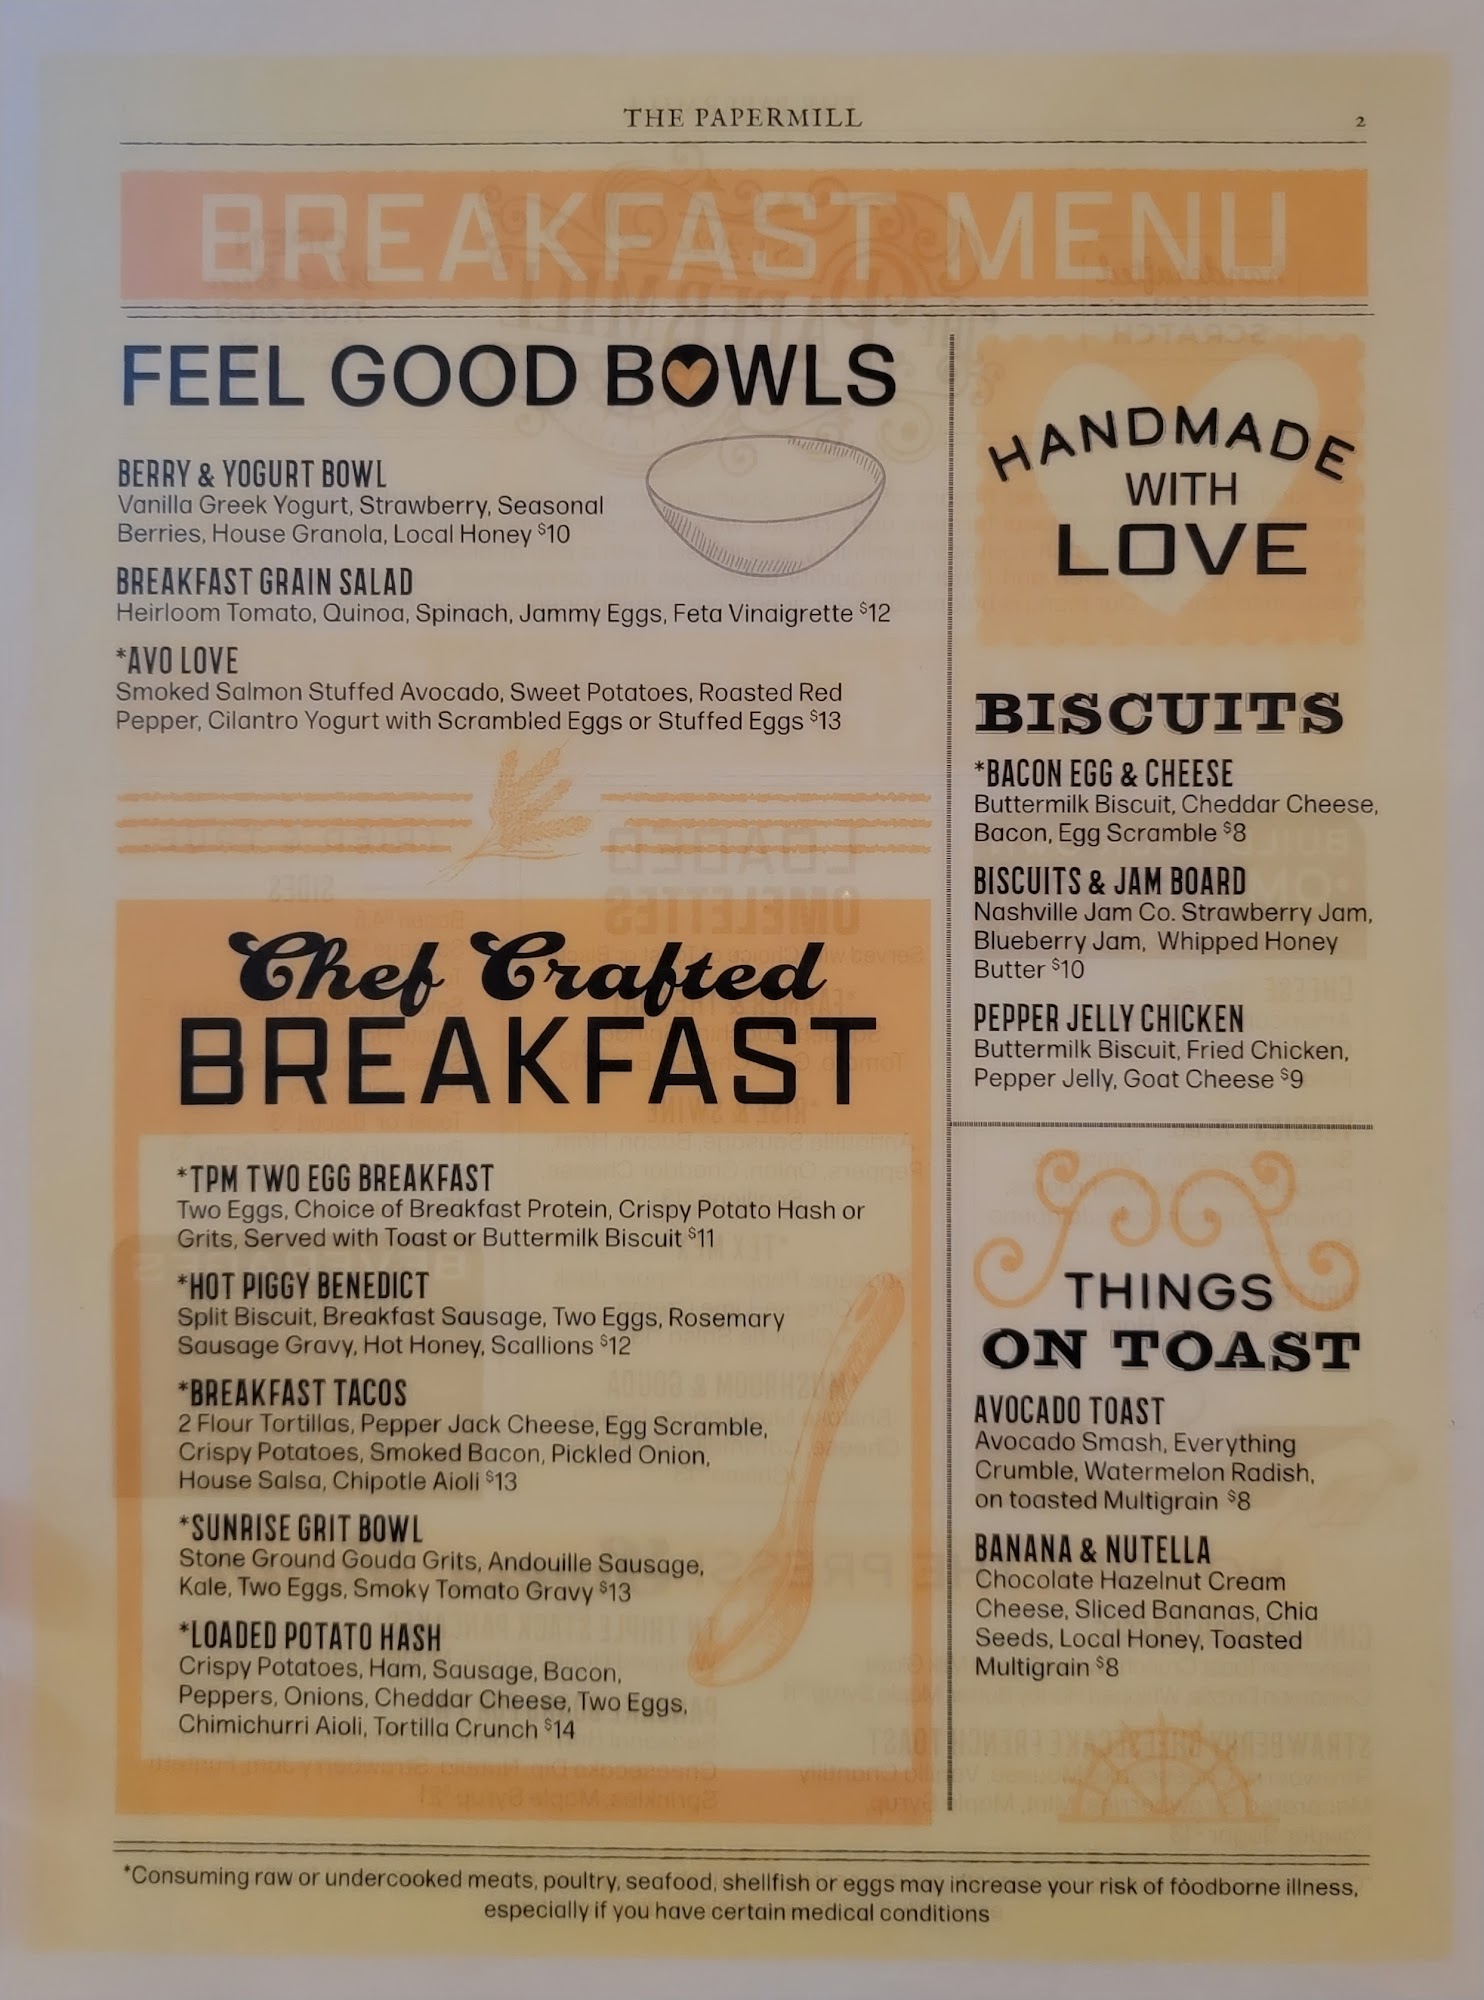 THE PAPERMILL
2
BREAKFAST MENU
FEEL GOOD BOWLS
BERRY & YOGURT BOWL
Vanilla Greek Yogurt, Strawberry, Seasonal
Berries, House Granola, Local Honey $10
BREAKFAST GRAIN SALAD
Heirloom Tomato, Quinoa, Spinach, Jammy Eggs, Feta Vinaigrette $12
*AVO LOVE
Smoked Salmon Stuffed Avocado, Sweet Potatoes, Roasted Red
Pepper, Cilantro Yogurt with Scrambled Eggs or Stuffed Eggs $13
Chef Crafted
BREAKFAST
*TPM TWO EGG BREAKFAST
Two Eggs, Choice of Breakfast Protein, Crispy Potato Hash or
Grits, Served with Toast or Buttermilk Biscuit $11
*HOT PIGGY BENEDICT
Split Biscuit, Breakfast Sausage, Two Eggs, Rosemary
Sausage Gravy, Hot Honey, Scallions $12
*BREAKFAST TACOS
2 Flour Tortillas, Pepper Jack Cheese, Egg Scramble,
Crispy Potatoes, Smoked Bacon, Pickled Onion,
House Salsa, Chipotle Aioli $13
*SUNRISE GRIT BOWL
Stone Ground Gouda Grits, Andouille Sausage,
Kale, Two Eggs, Smoky Tomato Gravy $13
*LOADED POTATO HASH
Crispy Potatoes, Ham, Sausage, Bacon,
Peppers, Onions, Cheddar Cheese, Two Eggs,
Chimichurri Aioli, Tortilla Crunch $14
HANDMADE
WITH
LOVE
BISCUITS
*BACON EGG & CHEESE
Buttermilk Biscuit, Cheddar Cheese,
Bacon, Egg Scramble $8
BISCUITS & JAM BOARD
Nashville Jam Co. Strawberry Jam,
Blueberry Jam, Whipped Honey
Butter $10
PEPPER JELLY CHICKEN
Buttermilk Biscuit, Fried Chicken,
Pepper Jelly, Goat Cheese $9
THINGS
ON TOAST
AVOCADO TOAST
Avocado Smash, Everything
Crumble, Watermelon Radish,
on toasted Multigrain $8
BANANA & NUTELLA
Chocolate Hazelnut Cream
Cheese, Sliced Bananas, Chia
Seeds, Local Honey, Toasted
Multigrain $8
*Consuming raw or undercooked meats, poultry, seafood, shellfish or eggs may increase your risk of foodborne illness,
especially if you have certain medical conditions